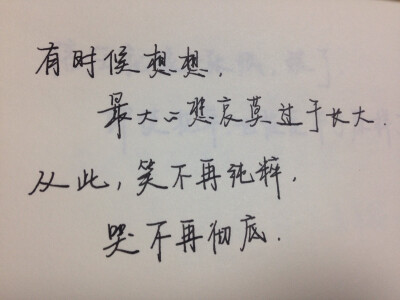 有时候想想，
最大的悲哀莫过于长大.
从此，笑不再纯粹，
哭不再彻底.